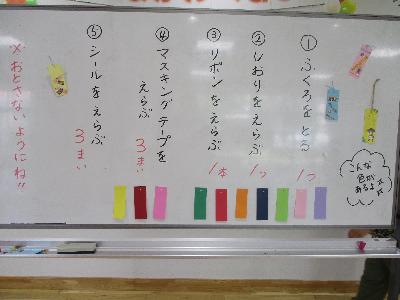 ①ふくろをとる
1つ
②しおりをえらぶ
1つ
③リボンをえらぶ
1本
④マスキングテープを
えらぶ 3まい
⑤シールをえらぶ 3まい
※おとさないようにね!!
こんな
色が
あるよ